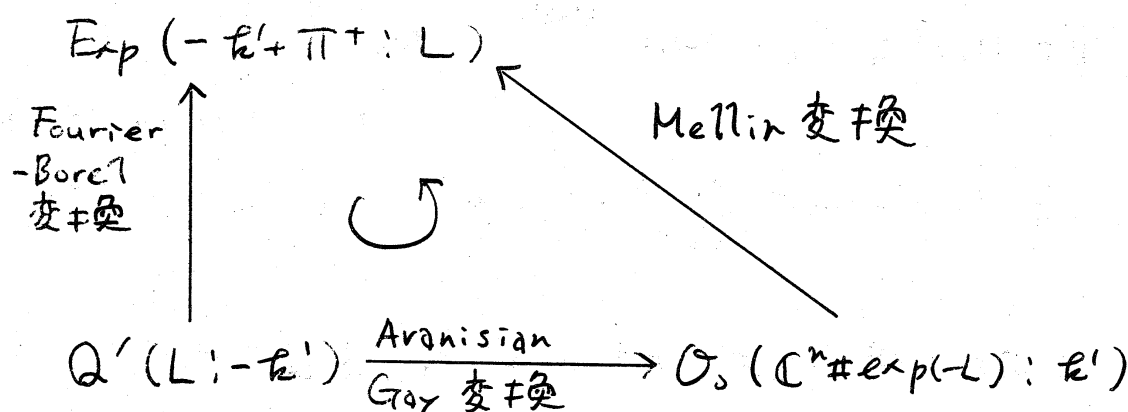 Exp (-k'+Π⁺ : L)
Fourier
-Borel
変換
Mellin 変換
Q'(L:-k')
Avanisian
Gay 変換
O₀ (ℂⁿ#exp(-L) : k')